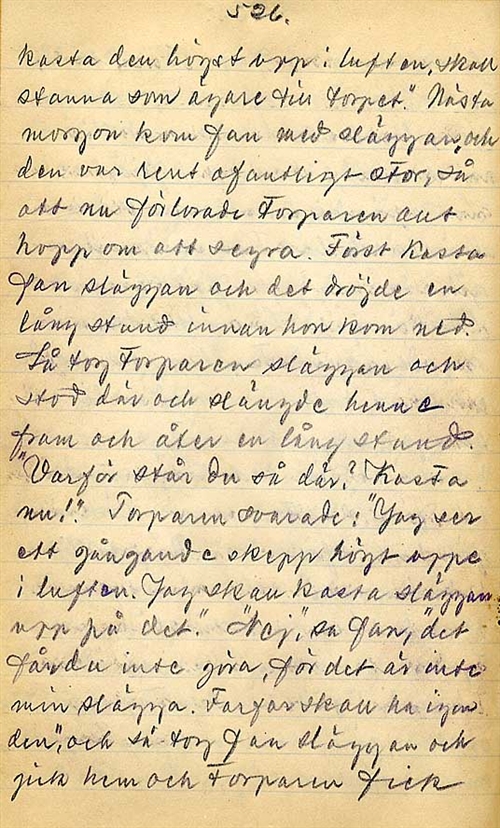 526.
kasta den högst upp i luften, skall
stanna som ägare till torpet." Nästa
morgon kom fan med släggan, och
den var rent ofantligt stor, så
att nu förlorade Torparen allt
hopp om att segra. Först Kasta
fan släggan och det dröjde en
lång stund innan hon kom ned.
Så tog Torparen släggan och
stod där och slängde henne
fram och åter en lång stund.
"Varför står du så där? Kasta
nu!". Torparen svarade: "Jag ser
ett gångande skepp högt uppe
i luften. Jag skall kasta släggan
upp på det." "Nej", sa fan, "det
får du inte göra, för det är inte
min slägga. Farfar skall ha igen
den", och så tog fan släggan och
gick hem och Torparen fick